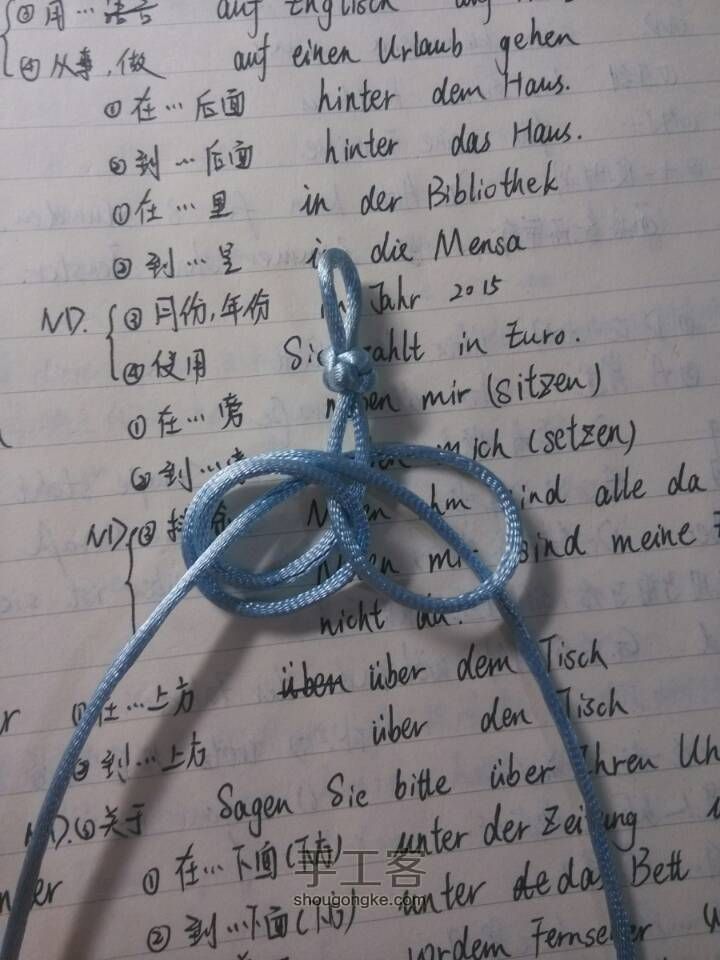 ③ 用… auf Englisch
④ 从事, 做 auf einen Urlaub gehen
① 在…后面 hinter dem Haus.
② 到…后面 hinter das Haus.
① 在…里 in der Bibliothek
② 到…里 in die Mensa
ND. ③ 月份, 年份 im Jahr 2015
④ 使用 Sie zahlt in Euro.
① 在…旁 neben mir (sitzen)
② 到… mich (setzen)
ND ③ ihm sind alle da
mir sind meine
nicht da.
über dem Tisch
① 在…上方
über den Tisch
② 到…上方
Sagen Sie bitte über Ihren
ND. ③ 关于
① 在…下面 (下方) unter der Zeitung
② 到…下面 (下方) unter das Bett
vor dem Fernseher
手工客
shougongke.com